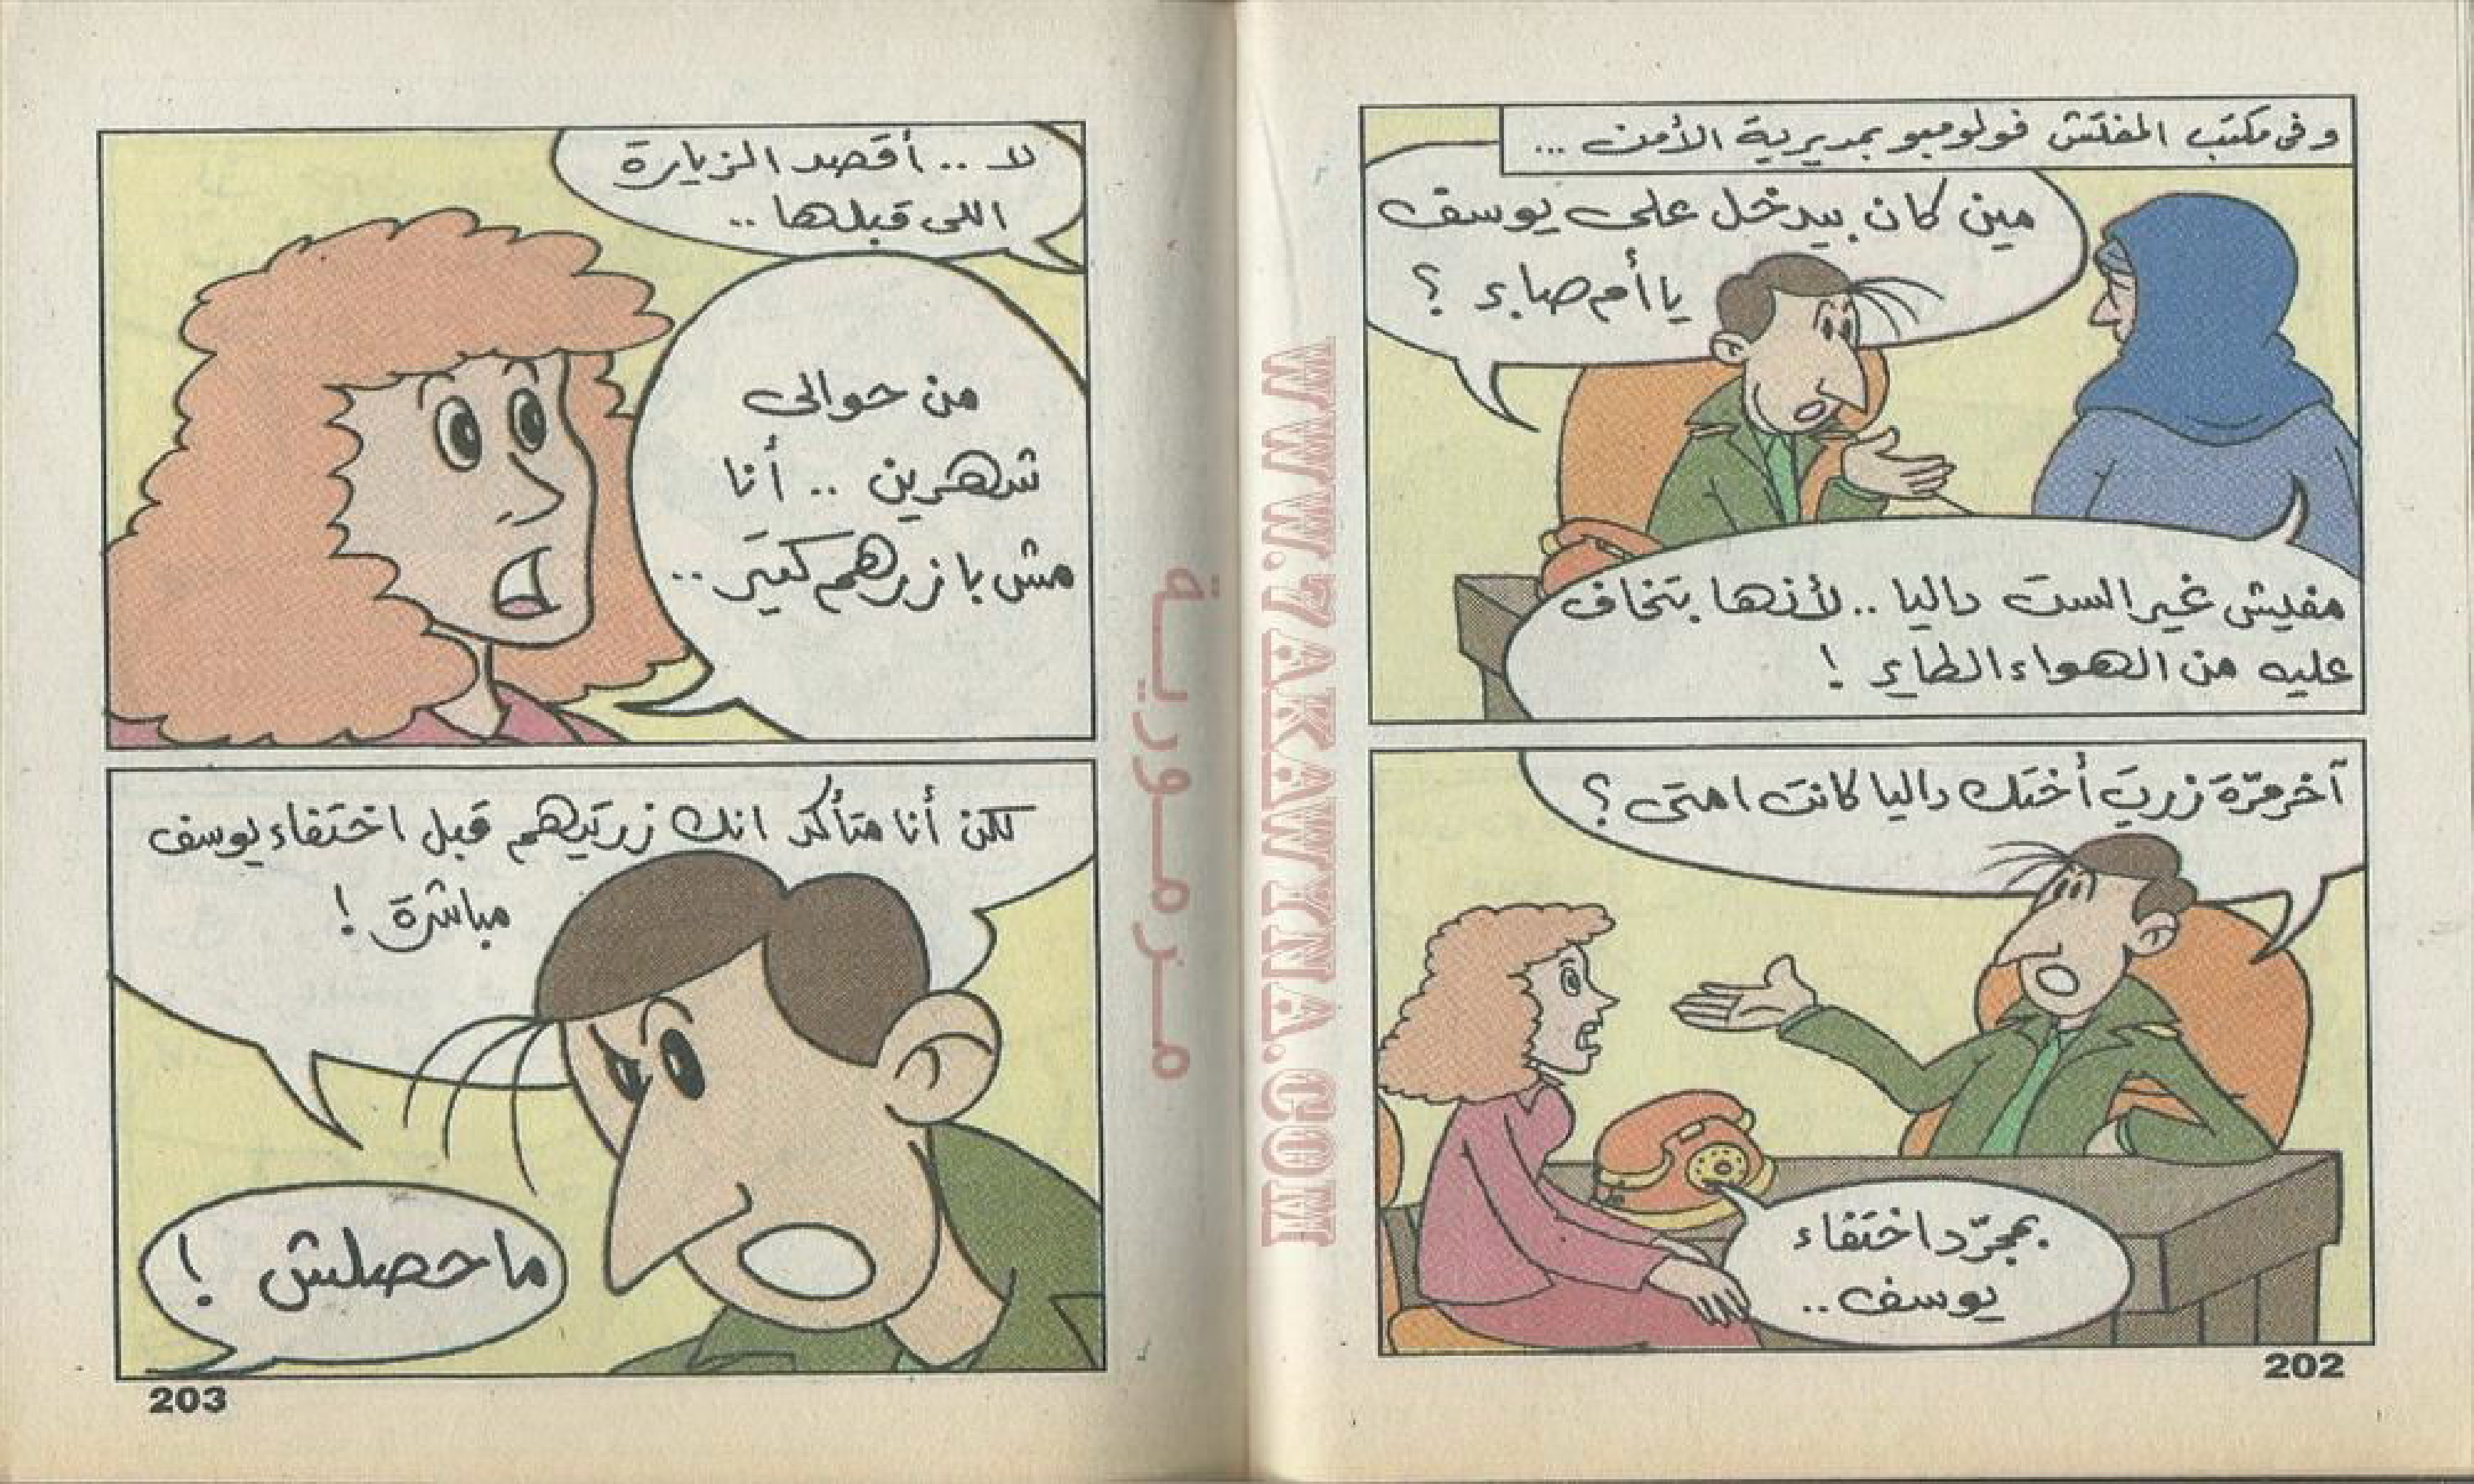 وفى مكتب المفتش فولومبو بمديرية الأمن ...
مين كان بيدخل على يوسف
يا أم صابر ؟
مفيش غير الست داليا .. لأنها بتخاف
عليه من الهواء الطاير !
آخر مرّة زرتِ أختك داليا كانت امتى ؟
بمجرّد اختفاء
يوسف ..
202
لا .. أقصد الزيارة
اللى قبلها ..
من حوالى
شهرين .. أنا
مش بازرهم كتير ..
لكن أنا متأكد انك زرتيهم قبل اختفاء يوسف
مباشرة !
ما حصلش !
203
مرمورية
WWW.7AKAWYNA.COM